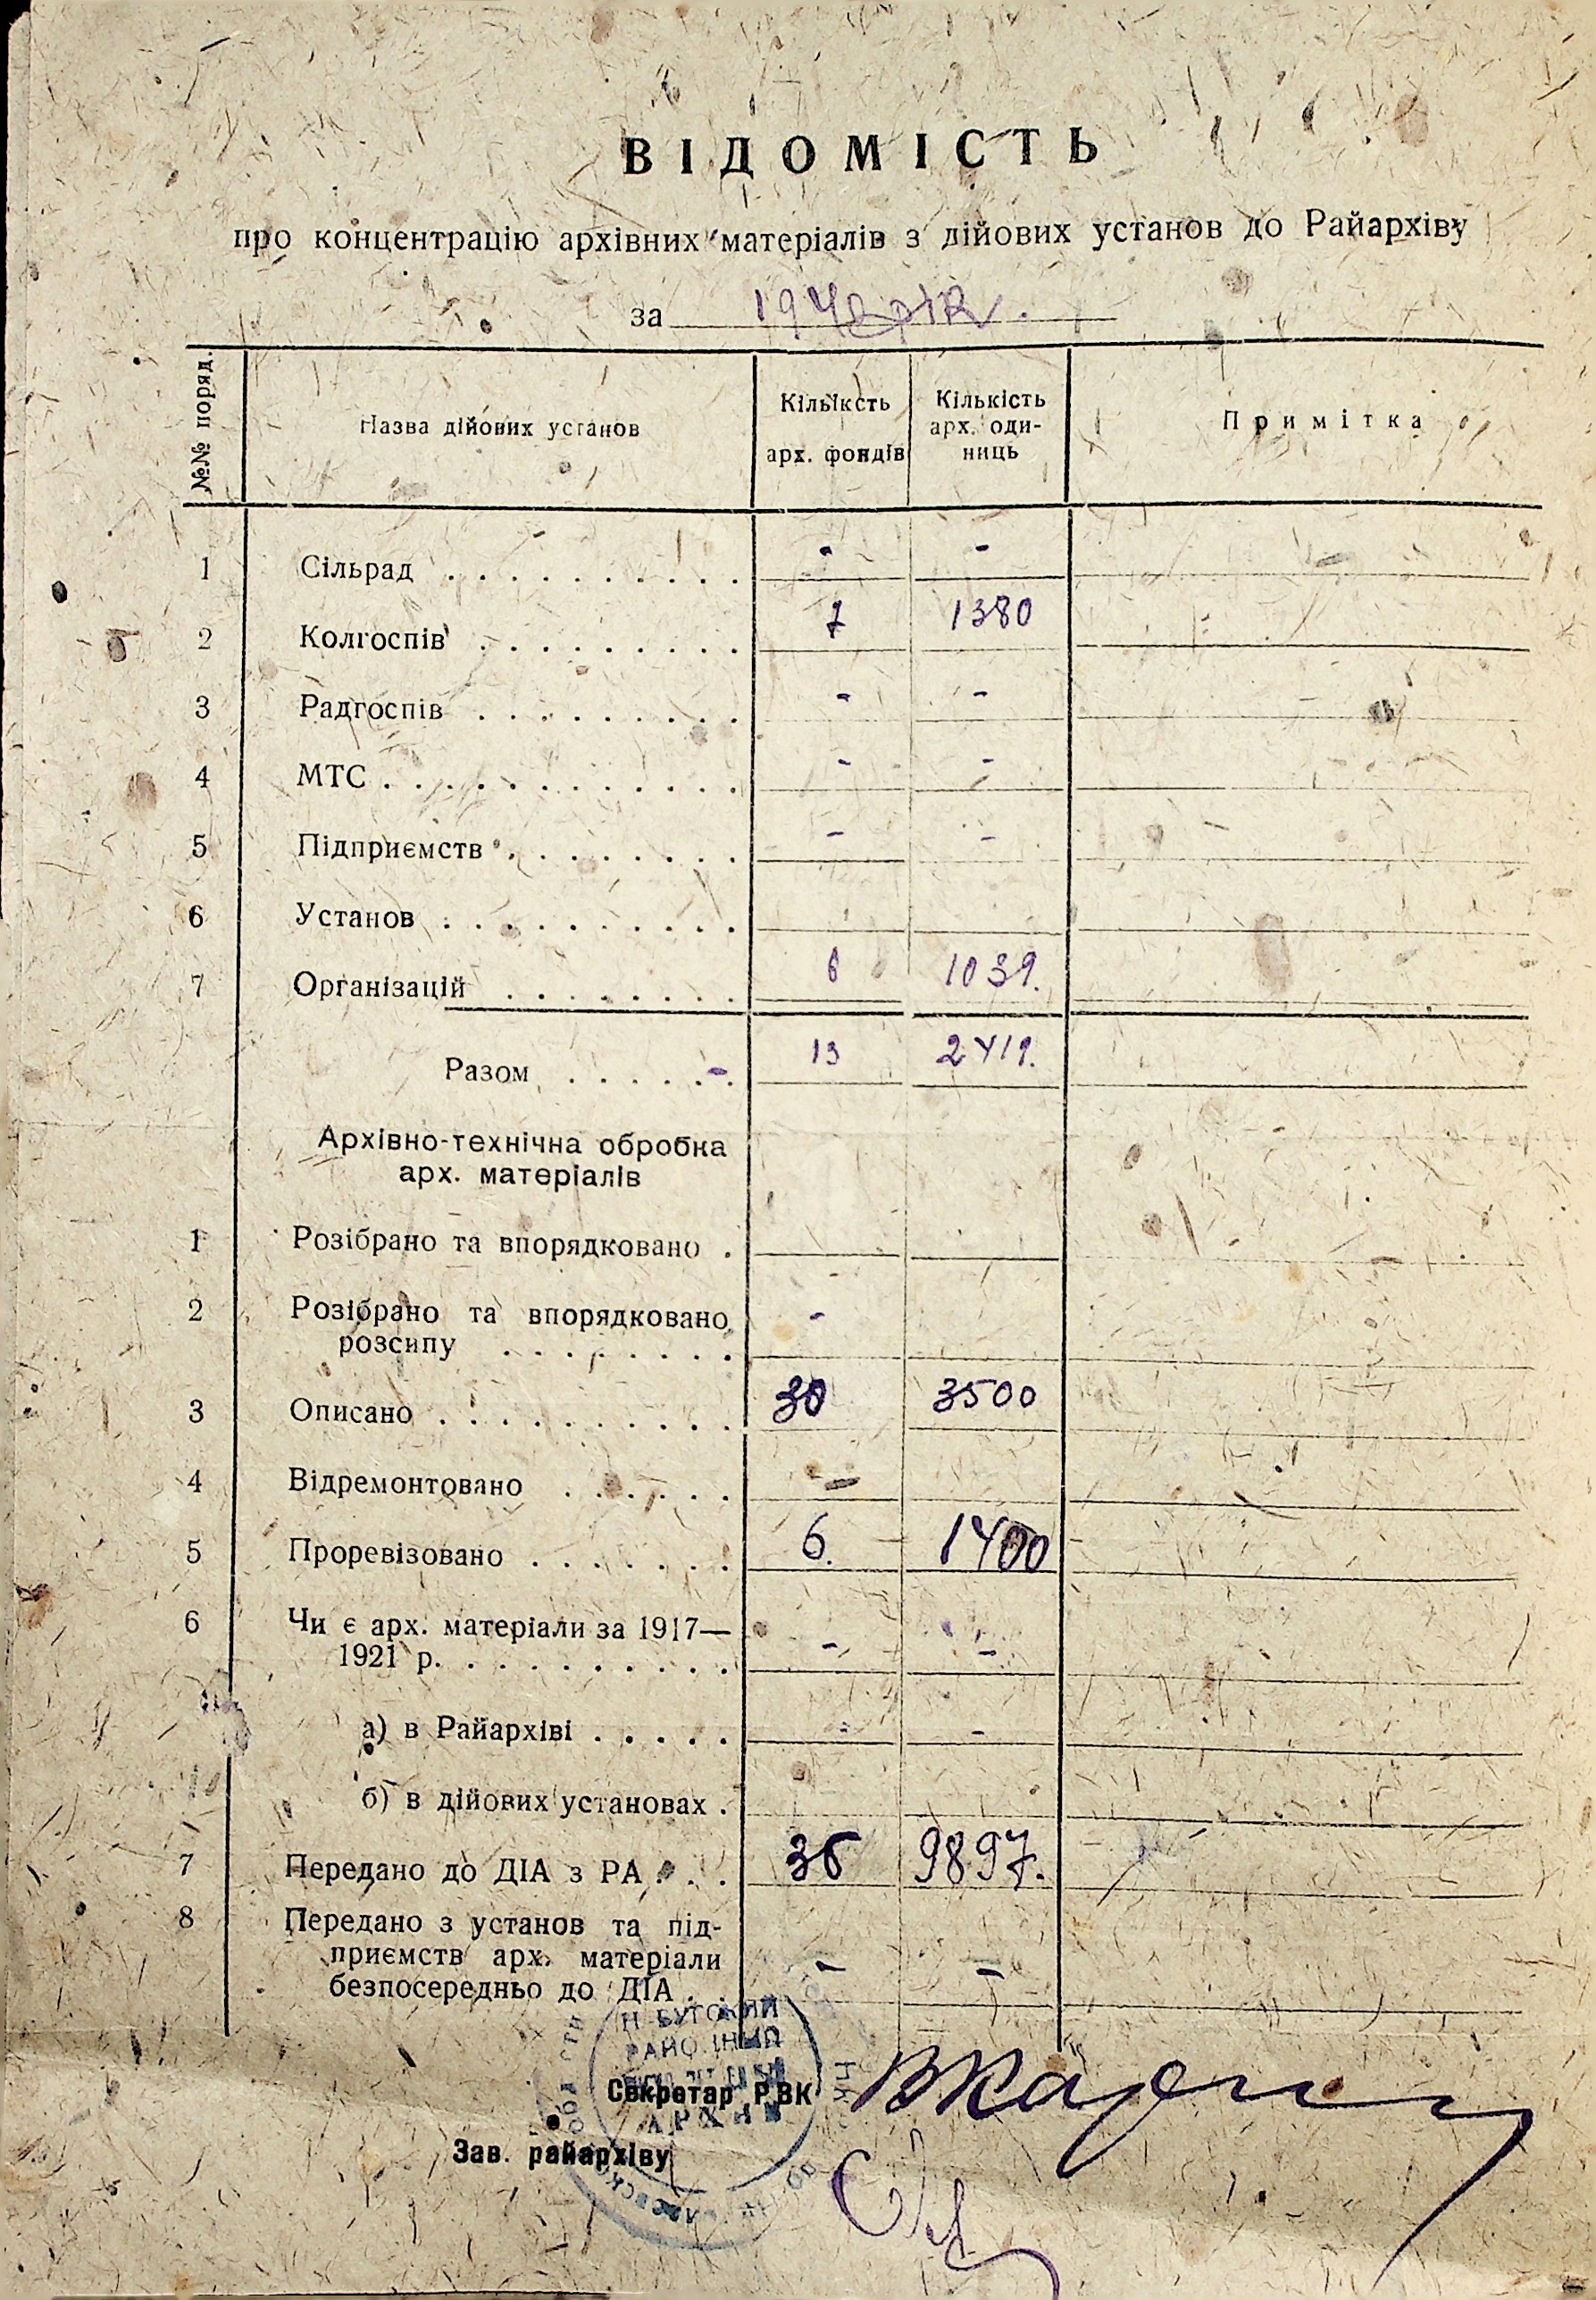 ВІДОМІСТЬ
про концентрацію архівних матеріалів з дійових установ до Райархіву
за 194 рік.
№№ поряд. Назва дійових установ Кільіксть арх. фондів Кількість арх. оди-ниць Примітка
1 Сільрад . . . . . . . . . . - -
2 Колгоспів . . . . . . . . . 7 1380
3 Радгоспів . . . . . . . . . - -
4 МТС . . . . . . . . . . . . - -
5 Підприємств . . . . . . . . - -
6 Установ . . . . . . . . . .
7 Організацій . . . . . . . . 6 1039.
Разом . . . . . . - 13 2419.
Архівно-технічна обробка
арх. матеріалів
1 Розібрано та впорядковано .
2 Розібрано та впорядковано
розсипу . . . . . . . . -
3 Описано . . . . . . . . . . 30 3500
4 Відремонтовано . . . . . . -
5 Проревізовано . . . . . . . 6. 1400
6 Чи є арх. матеріали за 1917—
1921 р. . . . . . . . . . . - -
а) в Райархіві . . . . . - -
б) в дійових установах .
7 Передано до ДІА з РА . . . 36 9897.
8 Передано з установ та під-
приємств арх. матеріали
безпосередньо до ДІА . . - -
Н БУГСКИЙ
АРХИВ
Секретар РВК
Зав. райархіву